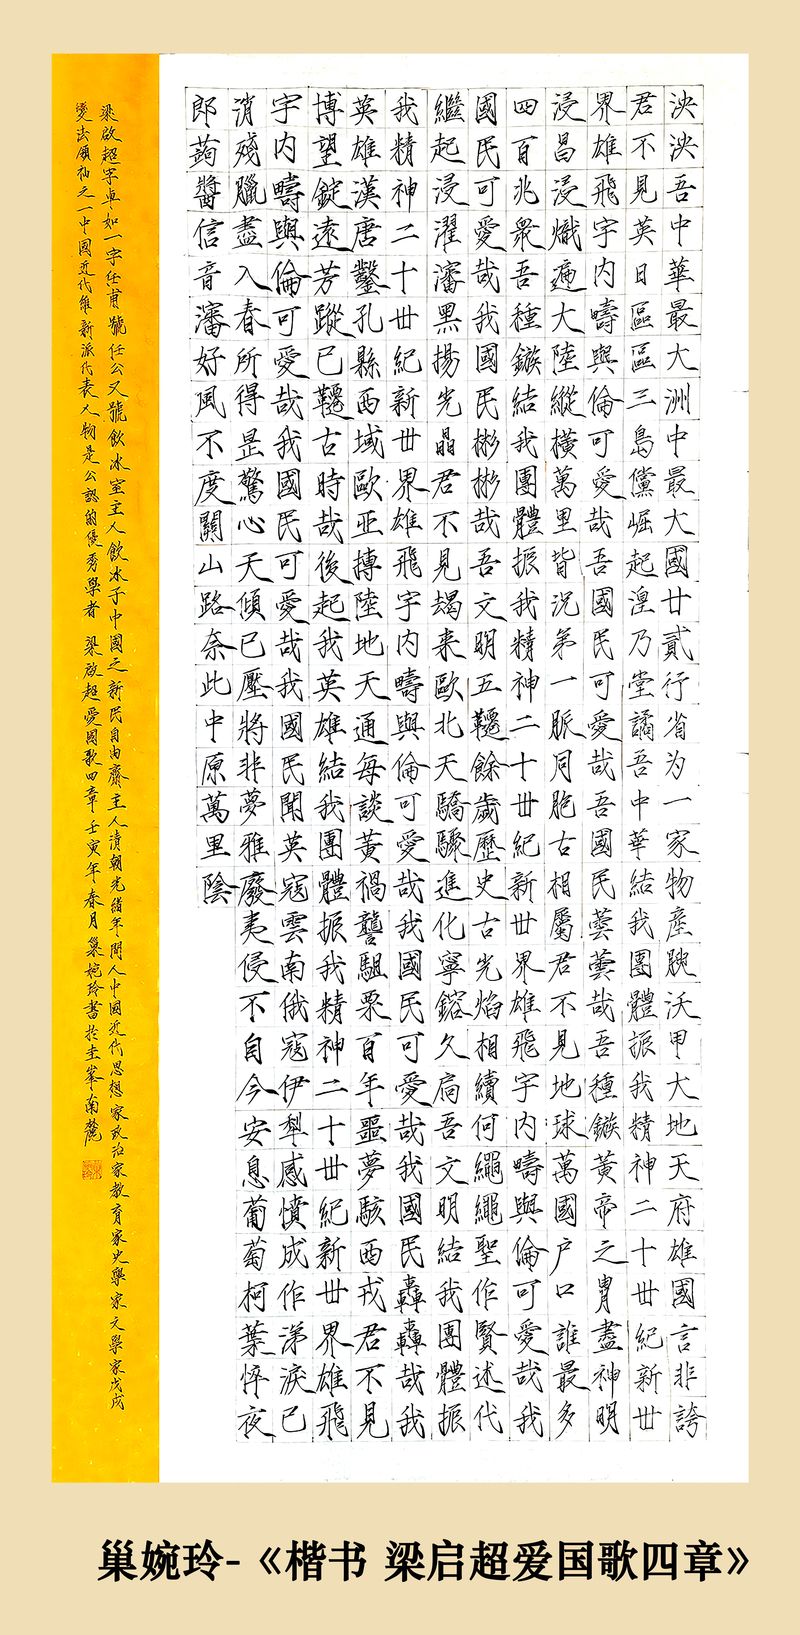 泱泱吾中華最大洲中最大國廿貳行省为一家物產腴沃甲大地天府雄國言非誇
君不見英日區區三島儻崛起湟乃堂譎吾中華結我團體振我精神二十世紀新世
界雄飛宇内疇與倫可愛哉吾國民可愛哉吾國民蕓蕓哉吾種鏃黃帝之胄盡神明
浸昌浸熾遍大陸縱橫萬里皆況第一脈同胞古相屬君不見地球萬國户口誰最多
四百兆衆吾種鏃結我團體振我精神二十世紀新世界雄飛宇内疇與倫可愛哉我
國民可愛哉我國民彬彬哉吾文明五韆餘歲歷史古光焰相續何繩繩聖作賢述代
繼起浸濯瀋黑揚光晶君不見朅来歐北天驕驟進化寧鎔久扃吾文明結我團體振
我精神二十世紀新世界雄飛宇内疇與倫可愛哉我國民可愛哉我國民轟轟哉我
英雄漢唐鑿孔縣西域歐亞摶陸地天通每談黃禍讋駔栗百年噩夢駭西戎君不見
博望錠遠芳蹤已韆古時哉後起我英雄結我團體振我精神二十世紀新世界雄飛
宇内疇與倫可愛哉我國民可愛哉我國民聞英寇雲南俄寇伊犁感憤成作涕淚已
消殘臘盡入春所得是驚心天傾已壓將非夢雅廢夷侵不自今安息葡萄柯葉悴夜
郎蒟醬信音瀋好風不度關山路奈此中原萬里陰
梁啟超字卓如一字任甫號任公又號飲冰室主人飲冰子中國之新民自由齋主人清朝光緒年間人中國近代思想家政治家教育家史學家文學家戊戌
變法領袖之一中國近代維新派代表人物是公認的優秀學者 梁啟超愛國歌四章壬寅年春月巢婉玲書於圭峯南麓
巢婉玲-《楷书 梁启超爱国歌四章》